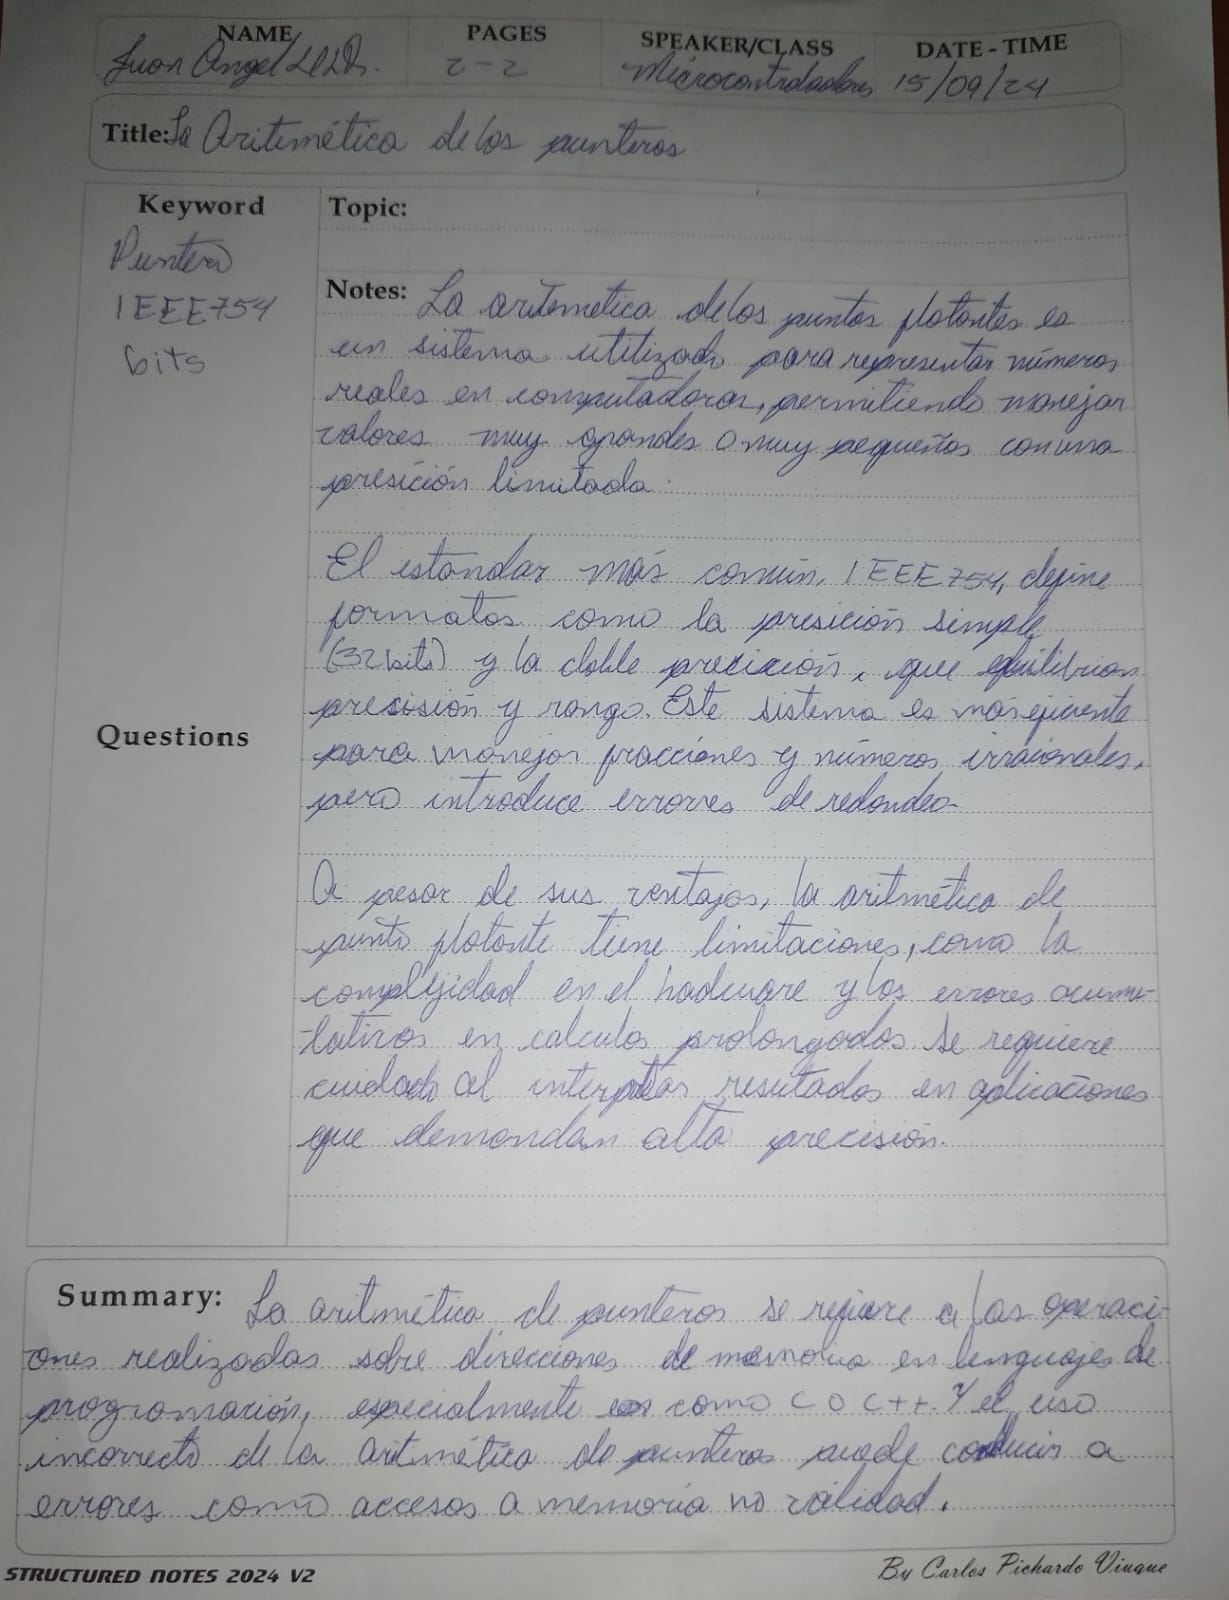 NAME PAGES SPEAKER/CLASS DATE - TIME
Juan Angel 2-2 Microcontroladores 15/09/24
Title: La Aritmética de los punteros
Keyword
Puntero
IEEE754
bits
Questions
Topic:
Notes: La aritmetica de los puntos flotantes es
un sistema utilizado para representar números
reales en computadoras, permitiendo manejar
valores muy grandes o muy pequeños con una
presición limitada.
El estandar más común, IEEE754, define
formatos como la presición simple
(32 bits) y la doble precición, que equilibrian
precisión y rango. Este sistema es más eficiente
para manejar fracciones y números irracionales,
pero introduce errores de redondeo.
A pesar de sus ventajas, la aritmética de
punto flotante tiene limitaciones, como la
complejidad en el hadware y los errores acumu-
lativos en calculos prolongados. Se requiere
cuidado al interpretar resutados en aplicaciones
que demandan alta precisión.
Summary: La aritmética de punteros se refiere a las operaci-
ones realizadas sobre direcciones de memoria en lenguajes de
programación, especialmente como C O C++. Y el uso
incorrecto de la aritmética de punteros puede conducir a
errores como accesos a memoria no validad.
STRUCTURED NOTES 2024 V2
By Carlos Pichardo Viuque